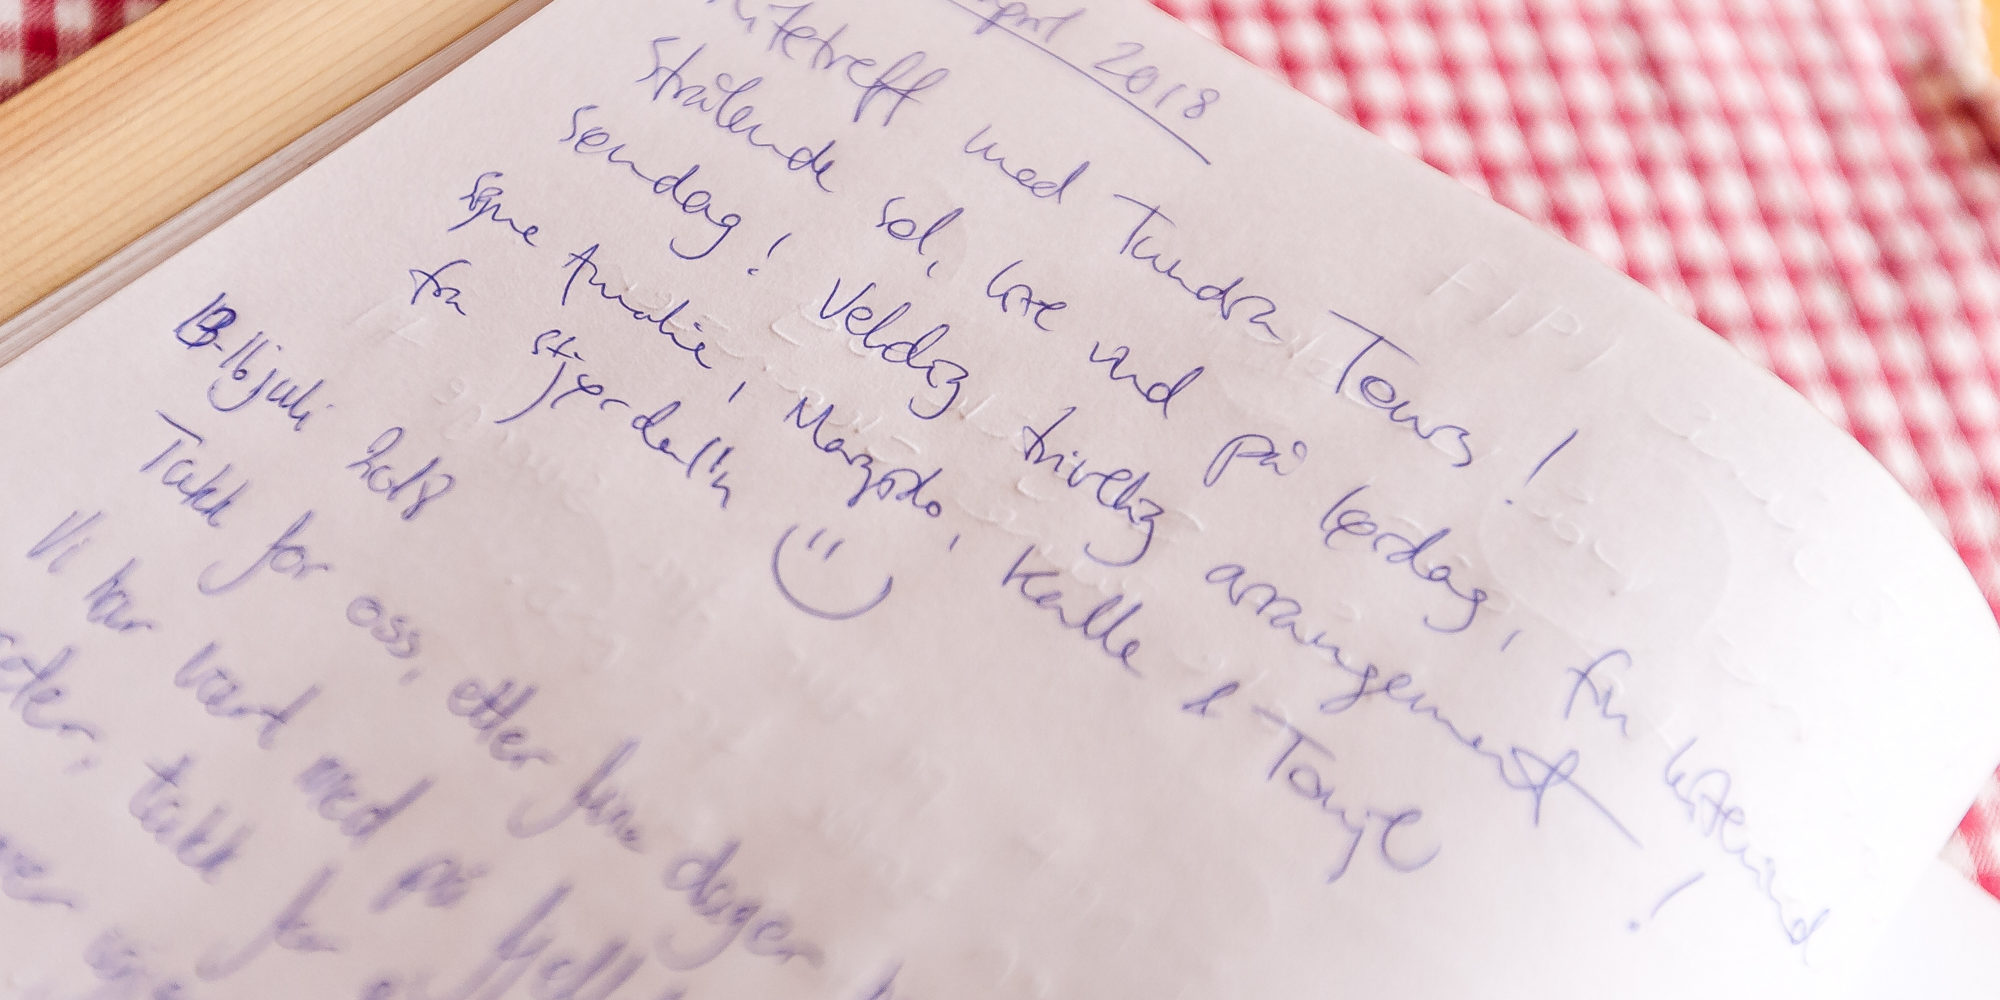 april 2018
Kitetreff med Tundra Tours!
Strålende sol, lite vind på lørdag, fin kitevind
søndag! Veldig trivelig arrangement!
Signe Amalie, Kalle & Tonje
fra Stjørdal'n
13-16 juli 2018
Takk for oss, etter fine dager
Vi har vært med på fjell
takk for